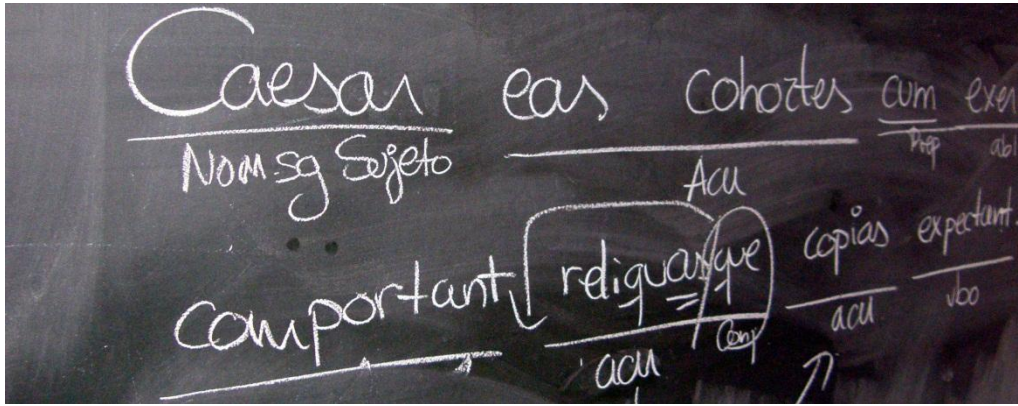 Caesar eas cohortes cum exer
Nom sg Sujeto Acu Prep abl
comportant, reliquasque copias expectant.
acu Conj acu vbo